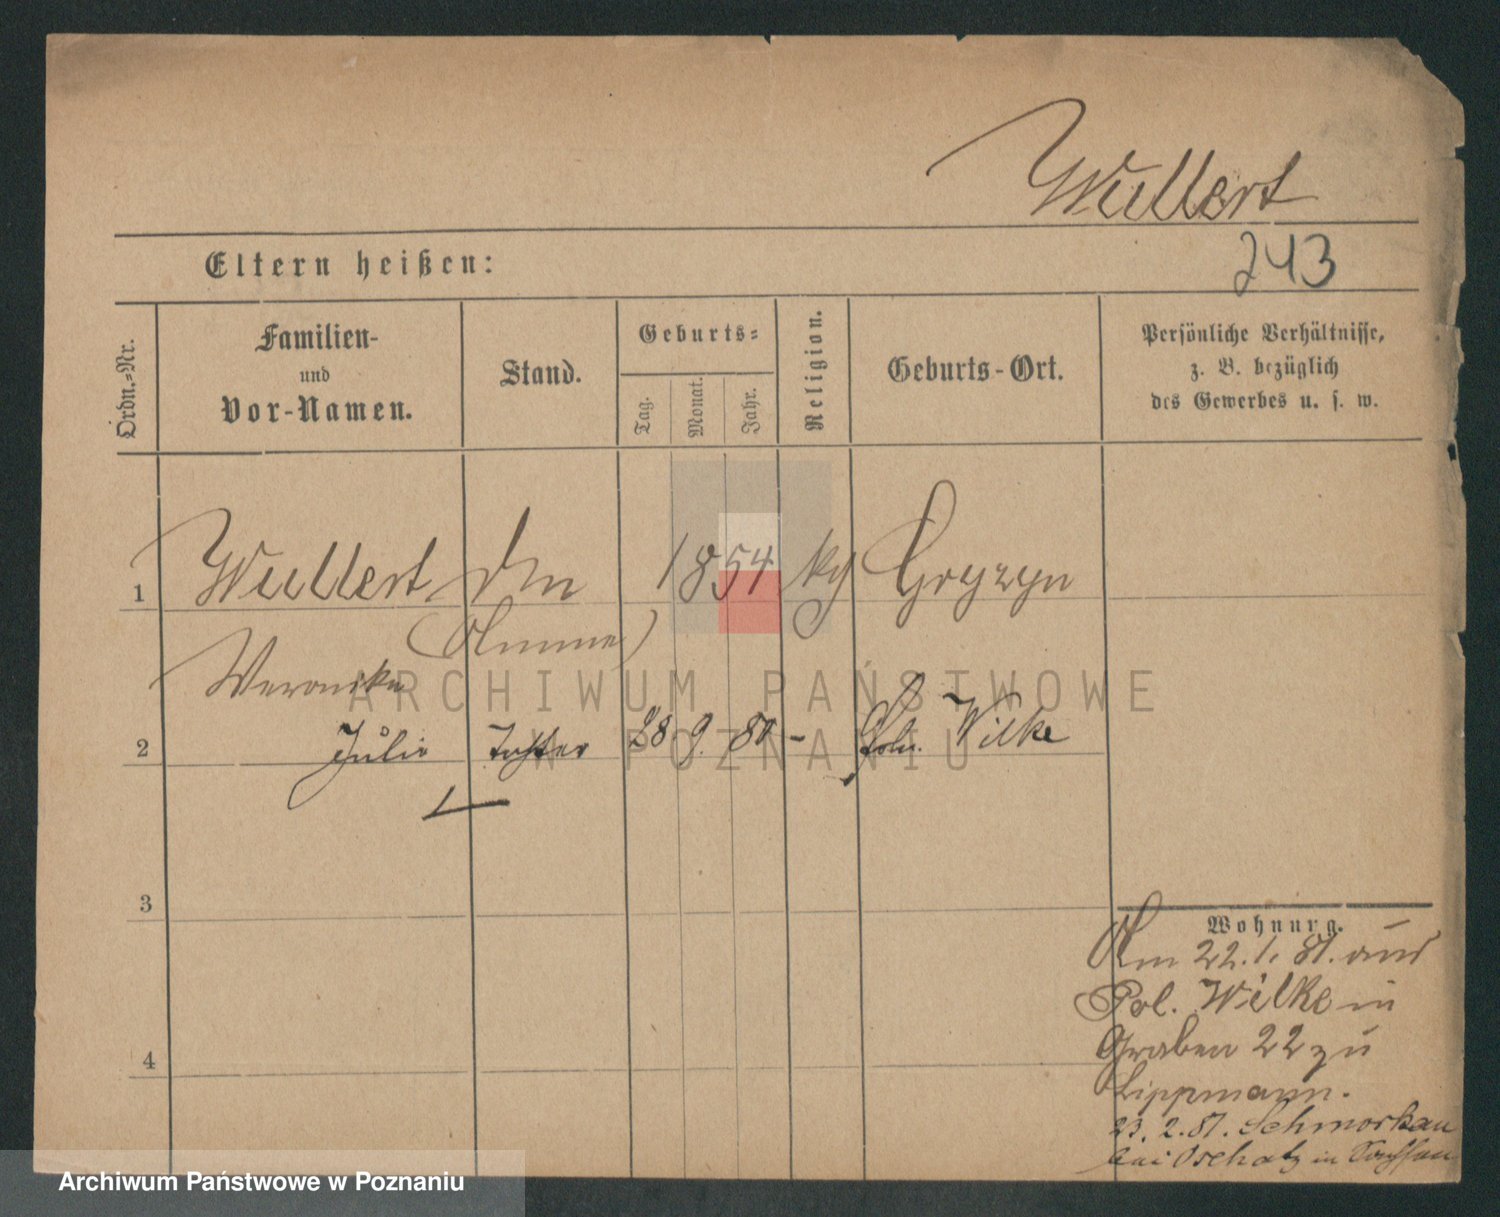 Wullert
243
Eltern heißen:
Ordn.-Nr.
Familien-
und
Vor-Namen.
Stand.
Geburts-
Tag.
Monat.
Jahr.
Religion.
Geburts-Ort.
Persönliche Verhältnisse,
z. B. bezüglich
des Gewerbes u. s. w.
1 Wullert 1854 Gryzyn
(Amme)
Weronika
2 Julie Tochter 28 9. 80 - Poln. Wilke
3
4
Wohnung.
Am 22. 1. 81. aus
Pol. Wilke in
Graben 22 zu
Lippmann.
23. 2. 81. Schmorkau
bei Oschatz in Sachsen
ARCHIWUM PAŃSTWOWE
W POZNANIU
Archiwum Państwowe w Poznaniu